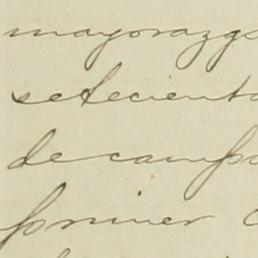 mayorazgo
setecient
de campo
primer